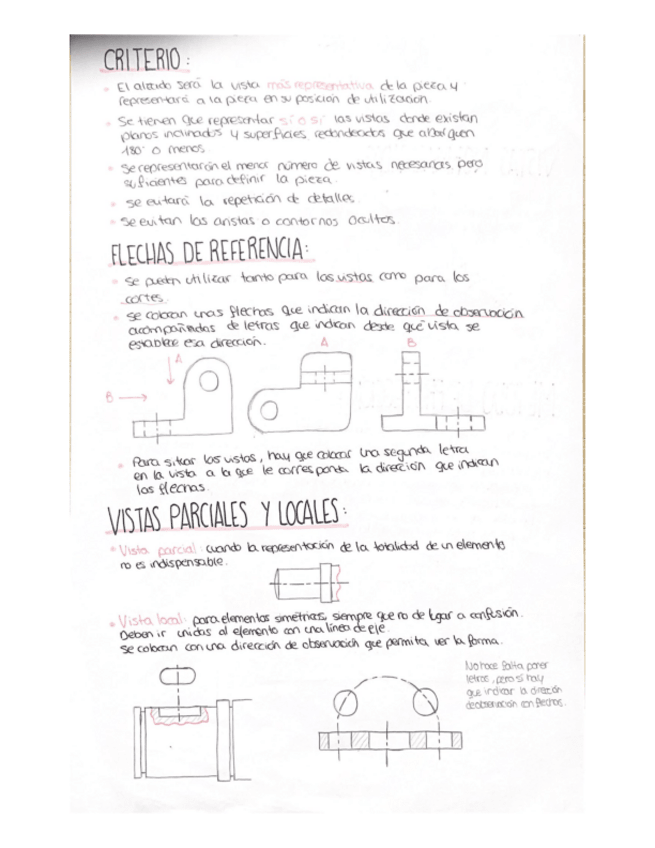 CRITERIO:
El alzado será la vista más representativa de la pieza y
representará a la pieza en su posición de utilización.
Se tienen que representar sí o sí las vistas donde existan
planos inclinados y superficies redondeadas que alberguen
180° o menos
Se representarán el menor número de vistas necesarias pero
suficientes para definir la pieza.
Se evitará la repetición de detalles.
Se evitan las aristas o contornos ocultos.
FLECHAS DE REFERENCIA:
Se pueden utilizar tanto para las vistas como para los
cortes.
Se colocan unas flechas que indican la dirección de observación
acompañadas de letras que indican desde qué vista se
establece esa dirección.
A
A
B
B
Para situar las vistas, hay que colocar una segunda letra
en la vista a la que le corresponda la dirección que indican
las flechas.
VISTAS PARCIALES Y LOCALES:
Vista parcial: cuando la representación de la totalidad de un elemento
no es indispensable.
Vista local: para elementos simétricos, siempre que no de lugar a confusión.
Deben ir unidas al elemento con una línea de eje.
Se colocan con una dirección de observación que permita ver la forma.
No hace falta poner
letras, pero sí hay
que indicar la dirección
de observación con flechas.